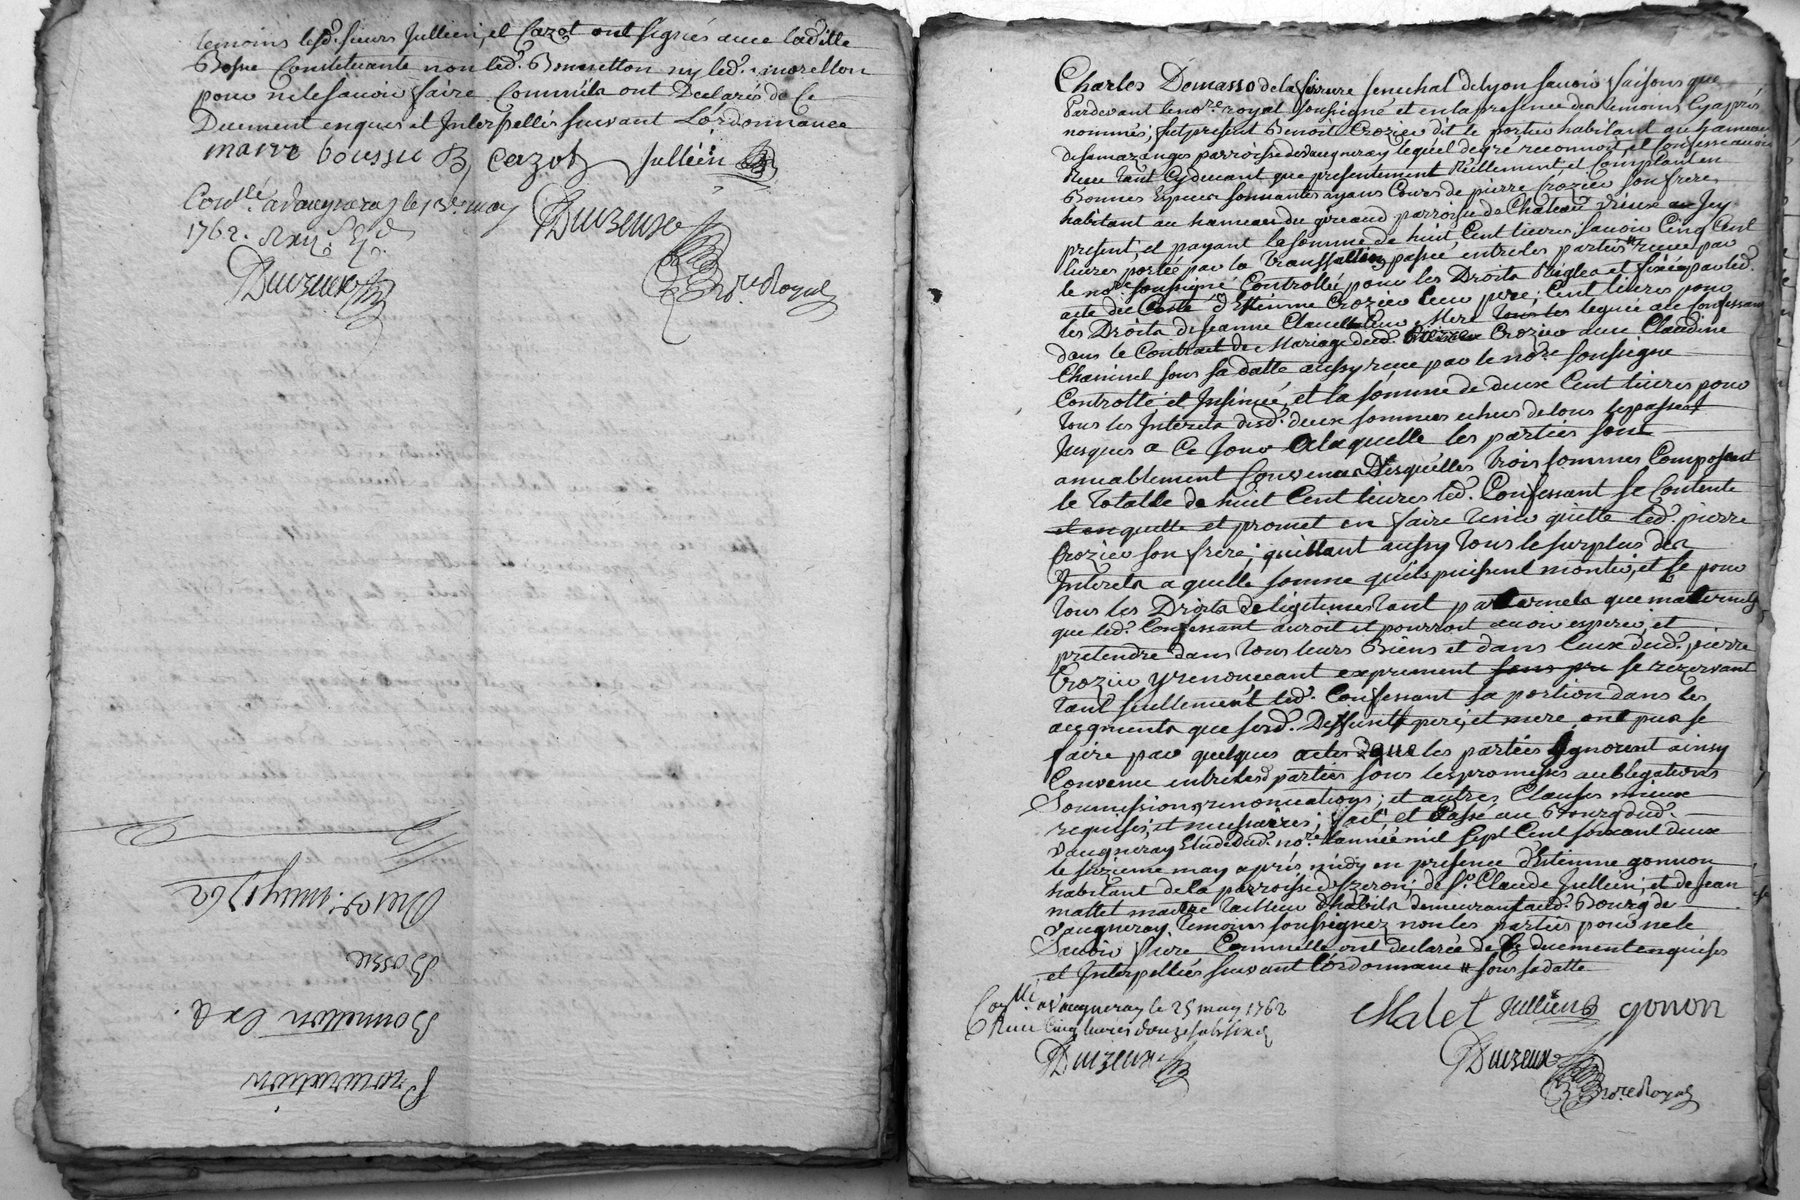 temoins lesd. sieurs Jullien, et Cazot ont signés avec ladille
Bossu Constituante non led. Bonnetton ny led. morellon
pour ne le savoir faire Comm'ils ont Declarés de Ce
Duement enquis et Interpellés suivant L'ordonnance
marre boussu B Cazot Jullien
Con.lé a Vaugneray le 13e may
1762. Rxu
Duvzeux
Duvzeux
No.re Royal
Procuration
Bonnetton
Bossu
may 1762
Charles Demasso de la ferrure senechal de Lyon savoir faisons que
Pardevant le no.re royal soussigné et en la presence des temoins Cy apres
nommés; fut present Benoit Crozier dit le portier habitant au hameau
de parroisse de Vaugneray lequel de gré reconnoit, et Confesse avoir
Receu tant Cydevant que presentement Réellement et Comptant en
Bonnes Especes sonnantes ayans Cours de pierre Crozier son frere
habitant au hameau du parroisse de Chateau vieux au Jcy
present, et payant la somme de huit Cent livres, savoir Cinq Cent
livres portée par la transsaction passée entre les parties receue par
le no.re soussigné Controllée pour les Droits Réglés et fixés par led.
acte du Conte d'Estienne Crozier leur pere; Cent livres pour
les Droits de Jeanne leur Mere legués au Confessant
dans le Contract de Mariage dud. Crozier avec Claudine
sous sa datte aussy receu par le no.re soussigné
Controllé et Insinué, et la somme de deux Cent livres pour
tous les Interets desd. deux sommes echeus de tous le passé
Jusques a Ce Jour a laquelle les parties sont
amiablement Convenues Desquelles trois sommes Composant
le totalle de huit Cent livres led. Confessant se Contente
et en quitte et promet en faire tenir quitte led. pierre
Crozier son frere; quittant aussy tous le surplus des
Interets a quelle somme qu'ils puissent monter, et se pour
tous les Droits de legitimes tant paternels que maternels
que led. Confessant auroit et pourroit avoir esperer, et
pretendre dans tous leurs Biens et dans Ceux dud. pierre
Crozier y renonceant expresment sans pre se rezervant
tant seullement led. Confessant sa portion dans les
augments que sesd. Deffunts pere, et mere ont pus se
faire par quelques actes que les parties Ignorent ainsy
Convenu entre lesd parties sous les promesses aubligations
Soumissions renonciations; et autres Clauses mieux
requises, et necessaires; fait et Passé au Bourg dud.
Vaugneray Etude dud. no.re L'année mil sept Cent soixant deux
le seizieme may aprés midy en presence d'Estienne gonnon
habitant de la parroisse d'Izeron; de S.r Claude Jullien; et de Jean
mallet maitre tailleur d'habits demeurant aud. Bourg de
Vaugneray temoins soussignez non les parties pour ne le
Savoir faire Comm'elle ont declarée de Ce duement enquises
et Interpellées suivant l'ordonnance # sous sa datte
Con.llé a Vaugneray le 25 may 1762
Receu Cinq livres douze sols six d
Duvzeux
Malet Jullien gonon
Duvzeux
No.re Royal